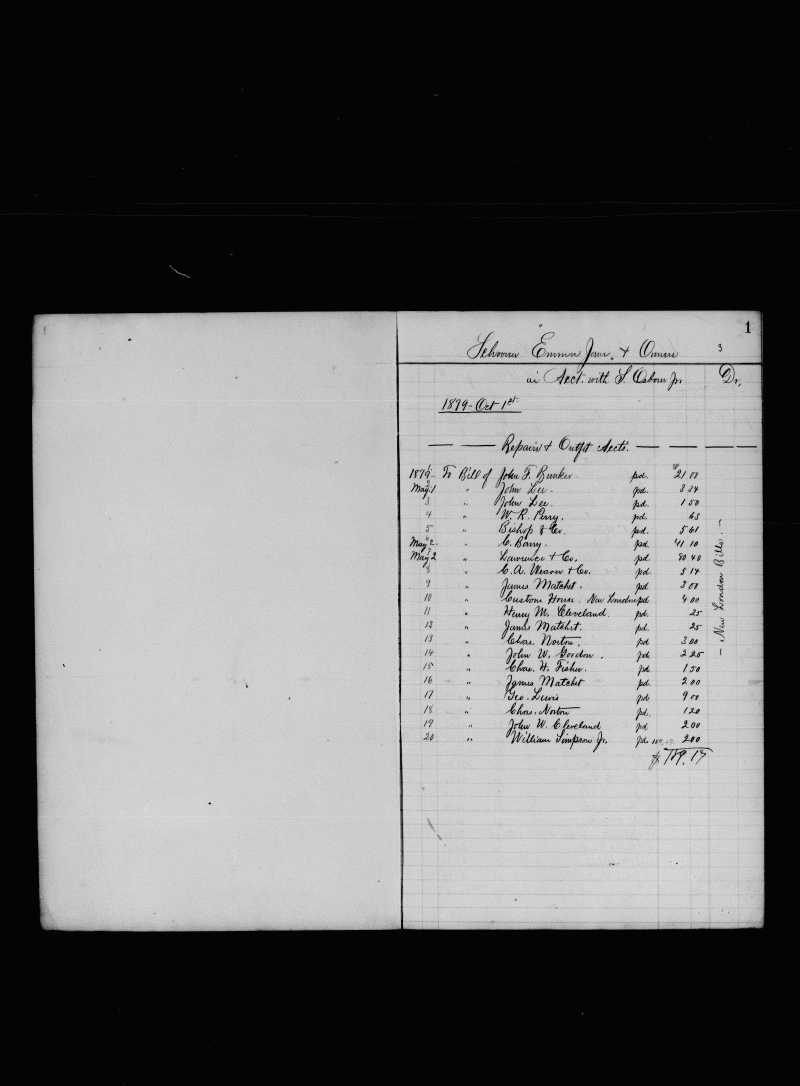 1
Schooner Emma Jane. & Owners
3
in Acct. with S. Osborn Jr. Dr.
1879 - Oct 1st
Repairs & Outfit Accts.
1879- 1 To Bill of John F. Bunker. pd. $21 00
May 1 2 " John Lee. pd. 3 34
3 " John Lee. pd. 1 50
4 " W. R. Perry. pd. 65
5 " Bishop & Co. pd. 5 61
May 2 6 " C. Barry. pd. 41 10
May 2 7 " Lawrence & Co. pd. 80 40
8 " C. A. Weaver & Co. pd. 5 14
9 " James Matchet. pd. 3 00
10 " Custom House. New London pd 4 00
11 " Henry M. Cleveland. pd. 25
12 " James Matchet. pd. 25
13 " Chas. Norton. pd 3 00
14 " John W. Gordon. pd. 2 25
15 " Chas. H. Fisher. pd. 1 50
16 " James Matchet pd. 2 00
17 " Geo. Lewis pd 9 00
18 " Chas. Norton pd. 1 20
19 " John W. Cleveland pd 2 00
20 " William Simpson Jr. pd. 2 00
$189.19
- New London Bills -